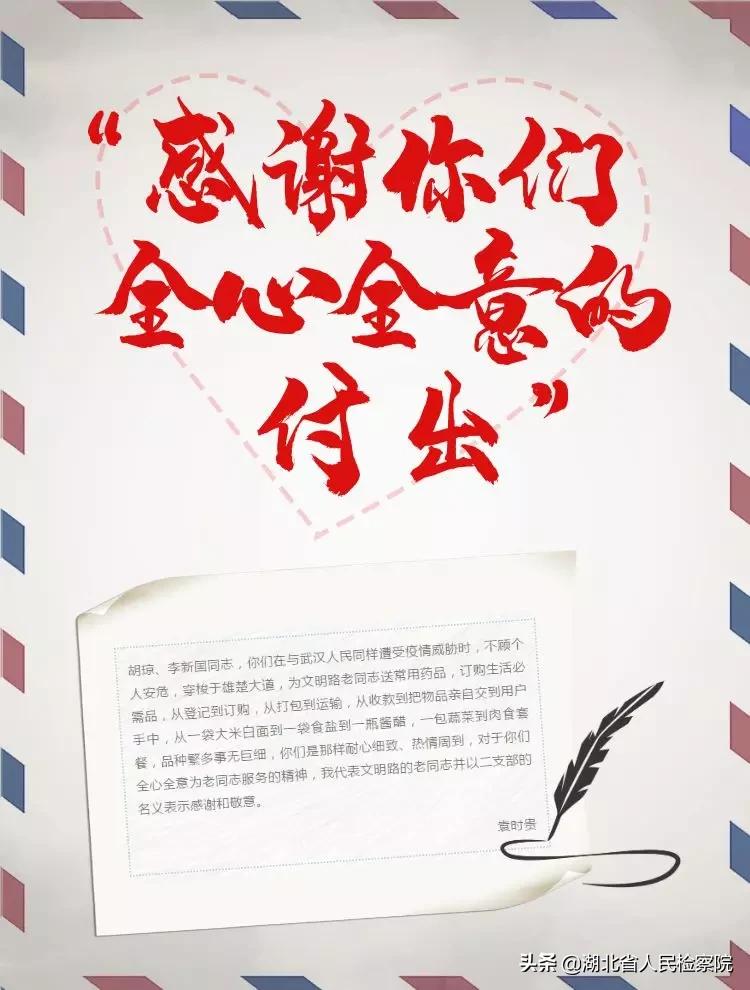 “感谢你们
全心全意的
付出”
胡琼、李新国同志，你们在与武汉人民同样遭受疫情威胁时，不顾个
人安危，穿梭于雄楚大道，为文明路老同志送常用药品，订购生活必
需品，从登记到订购，从打包到运输，从收款到把物品亲自交到用户
手中，从一袋大米白面到一袋食盐到一瓶酱醋，一包蔬菜到肉食套
餐，品种繁多事无巨细，你们是那样耐心细致、热情周到，对于你们
全心全意为老同志服务的精神，我代表文明路的老同志并以二支部的
名义表示感谢和敬意。
袁时贵
头条 @湖北省人民检察院